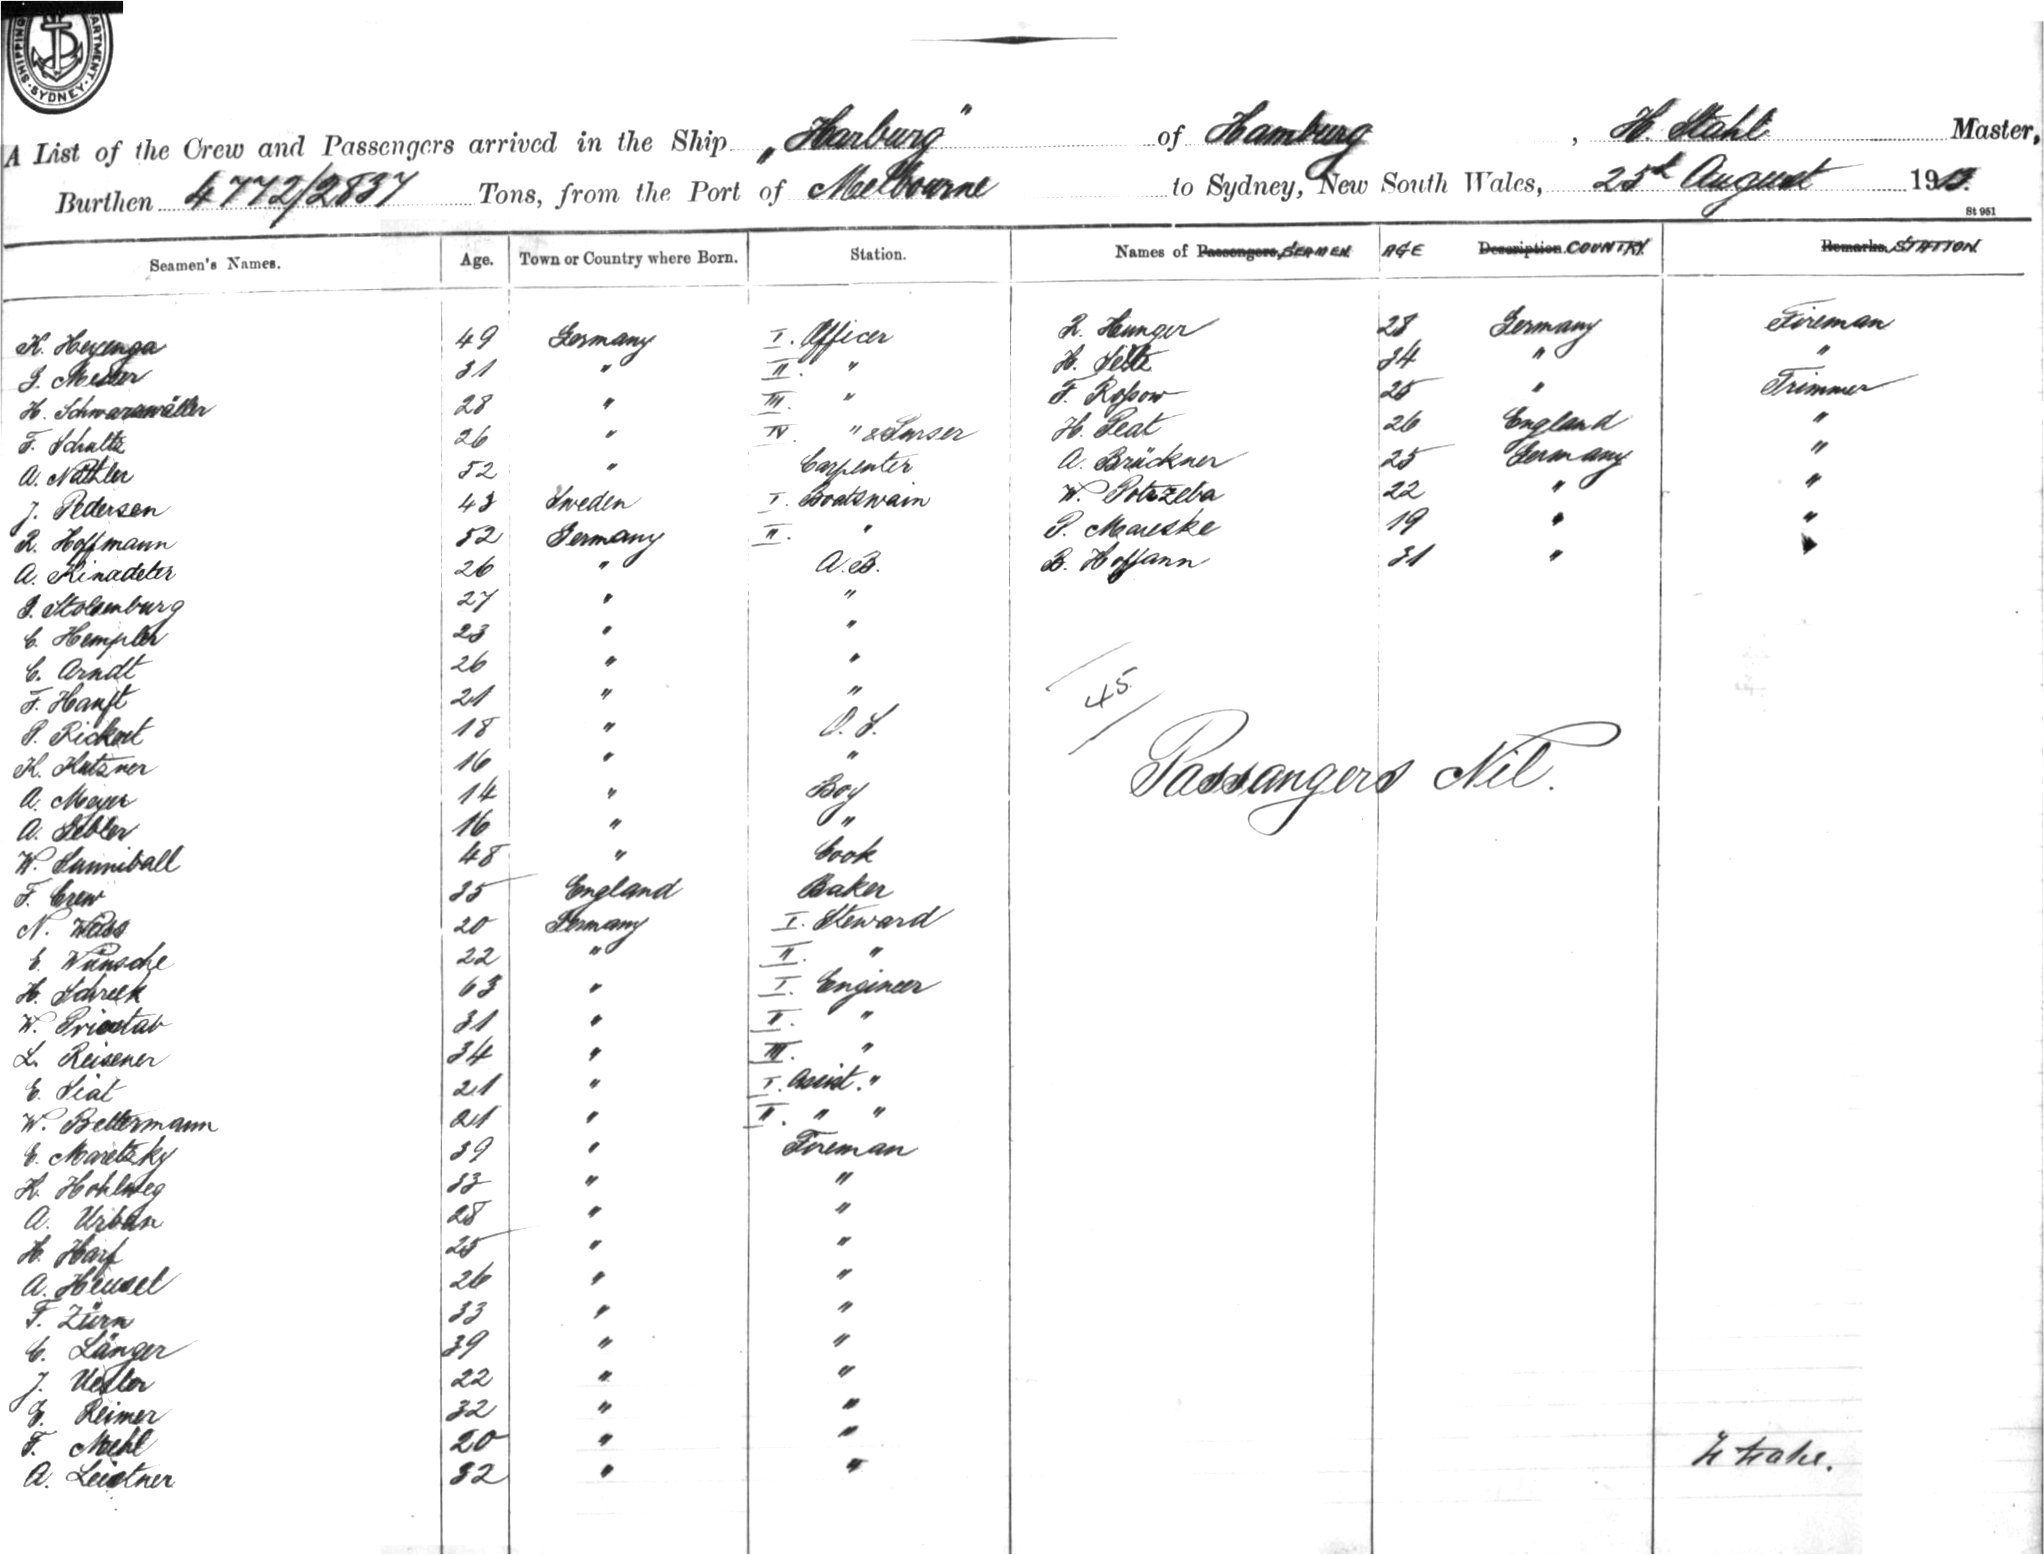 SHIPPING DEPARTMENT SYDNEY
A List of the Crew and Passengers arrived in the Ship „Harburg" of Hamburg, H. Stahl Master,
Burthen 4772/2837 Tons, from the Port of Melbourne to Sydney, New South Wales, 25th August 19
St 951
Seamen's Names. Age. Town or Country where Born. Station. Names of Passengers, SEAMEN AGE Description. COUNTRY Remarks. STATION
K. Heyenga 49 Germany I. Officer R. Hunger 28 Germany Fireman
31 " II. " H. 34 " "
H. Schwarzwäller 28 " III. " F. Rossow 25 " Trimmer
F. Schultz 26 " IV. " & Purser H. Peat 26 England "
A. 52 " Carpenter A. Brückner 25 Germany "
J. Pedersen 43 Sweden I. Boatswain W. Potrzeba 22 " "
R. Hoffmann 52 Germany II. " P. Mareske 19 " "
A. Kinadeter 26 " A.B. B. Hoffann 31 " "
G. Stolzenburg 27 " "
C. Hempler 23 " "
C. Arndt 26 " "
F. Hanft 21 " "
P. Rickert 18 " O.S.
K. Kutzner 16 " "
A. Meyer 14 " Boy
A. 16 " "
W. Hanniball 48 " Cook
F. Crew 35 England Baker
N. Weiss 20 Germany I. Steward
E. Wünsche 22 " II. "
H. Schreck 63 " I. Engineer
W. 31 " II. "
L. Reisener 34 " III. "
E. Siat 21 " I. Assist. "
W. Bettermann 21 " II. " "
E. Maretzky 39 " Fireman
K. Hohlweg 33 " "
A. Urban 28 " "
H. Harf 25 " "
A. Heusel 26 " "
F. Zürn 33 " "
C. Länger 39 " "
J. 22 " "
Reimer 32 " "
F. Mehl 20 " "
A. Leistner 32 " "
45.
Passangers Nil.
H Stahl.